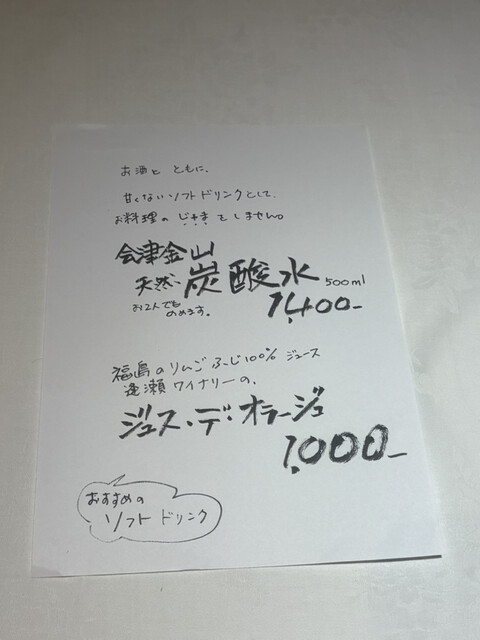 お酒と ともに、
甘くないソフトドリンクとして、
お料理のじゃまをしません。
会津金山
天然 炭酸水 500ml
お2人でも
のめます。
1,400-
福島のりんごふじ100%ジュース
逢瀬ワイナリーの、
ジュス・デ・オラージュ
1,000-
おすすめの
ソフトドリンク